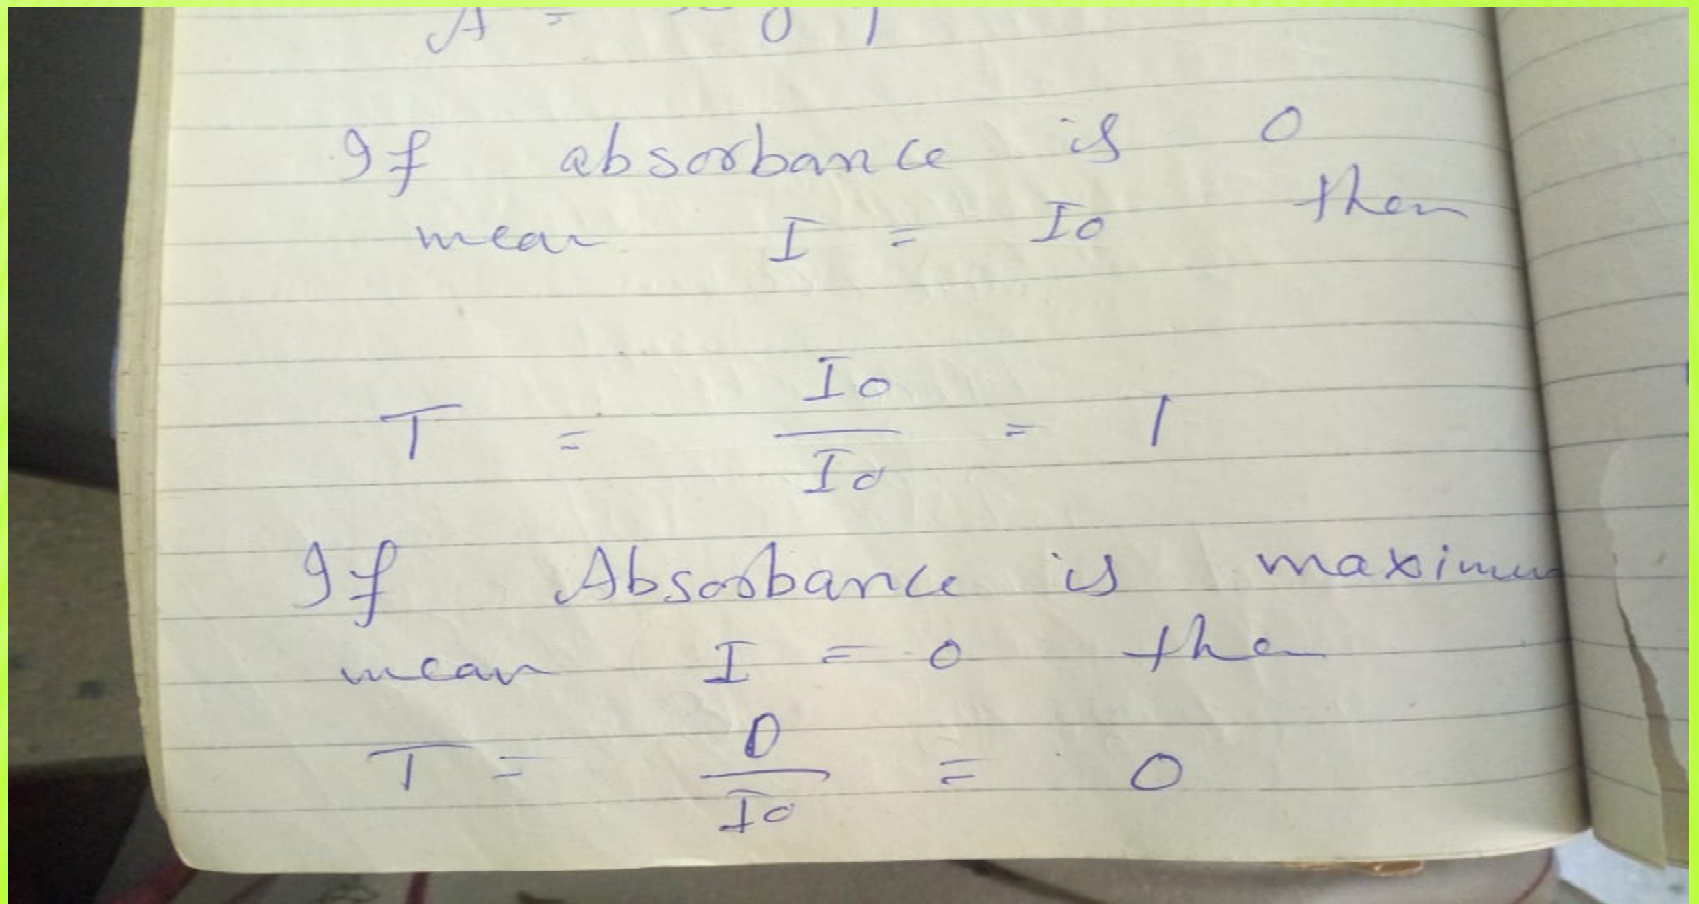 A =
If absorbance is 0
mean I = Io then
T = Io / Io = 1
If Absorbance is maximum
mean I = 0 then
T = 0 / Io = 0